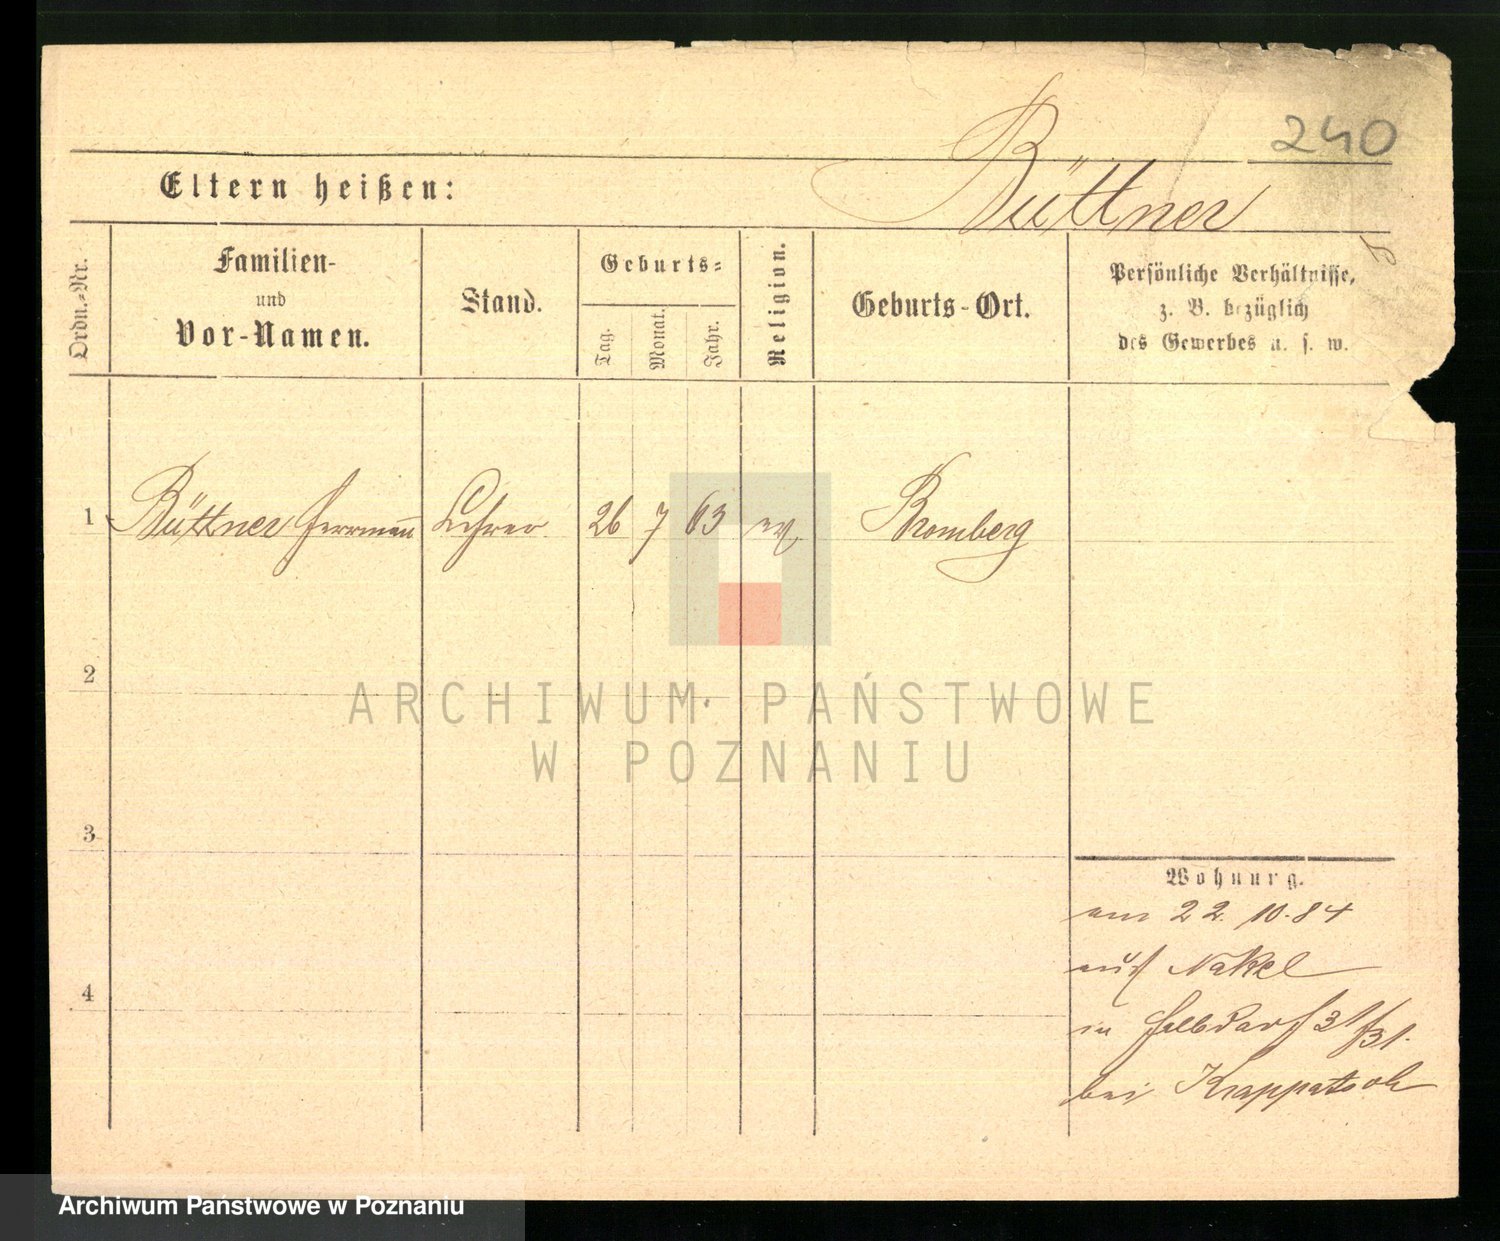 240
Büttner
Eltern heißen:
Ordn.-Nr.
Familien-
und
Vor-Namen.
Stand.
Geburts-
Tag.
Monat.
Jahr.
Religion.
Geburts-Ort.
Persönliche Verhältnisse,
z. B. bezüglich
des Gewerbes u. s. w.
1 Büttner Herrmann Lehrer 26 7 63 ev. Bromberg
2
ARCHIWUM PAŃSTWOWE
W POZNANIU
3
Wohnung.
am 22. 10. 84
auß Nakel
4
in 31/31.
bei
Archiwum Państwowe w Poznaniu